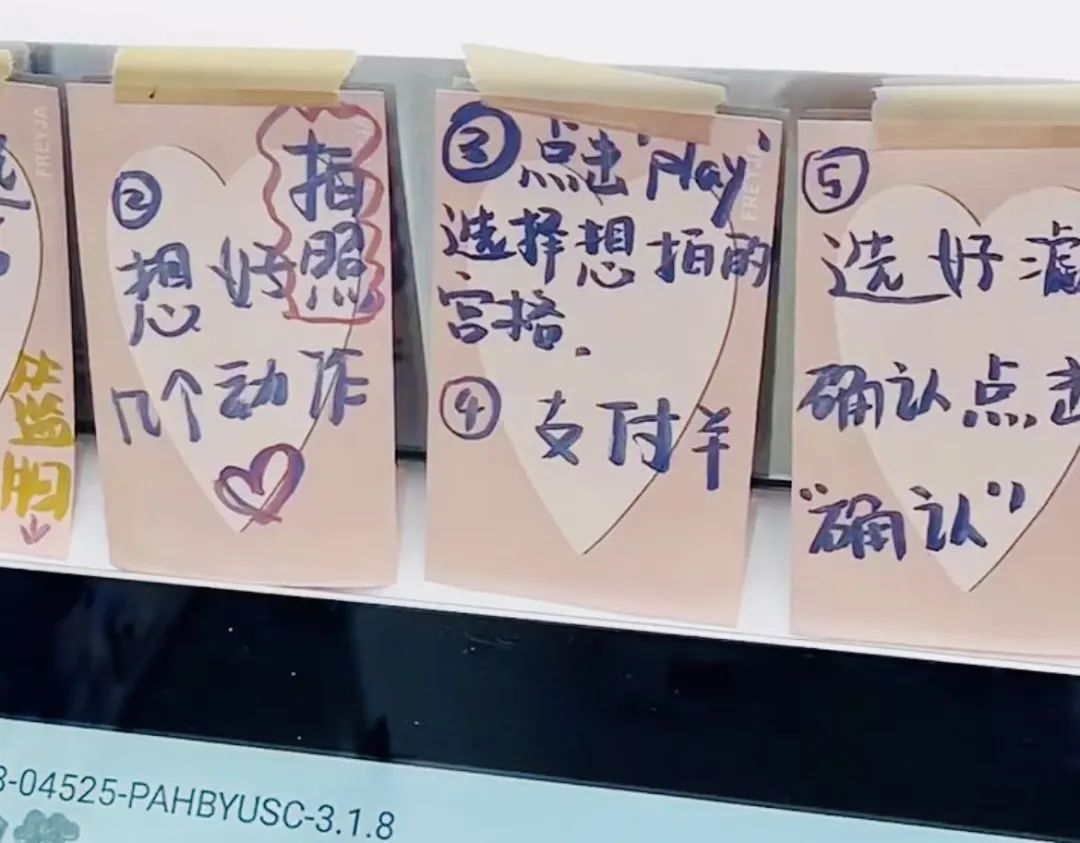 FREYJA
②
拍照
想好
几个动作
③点击"play"
FREYJA
选择想拍的
宫格.
④ 支付¥
⑤
选好滤
确认点击
"确认"
3-04525-PAHBYUSC-3.1.8